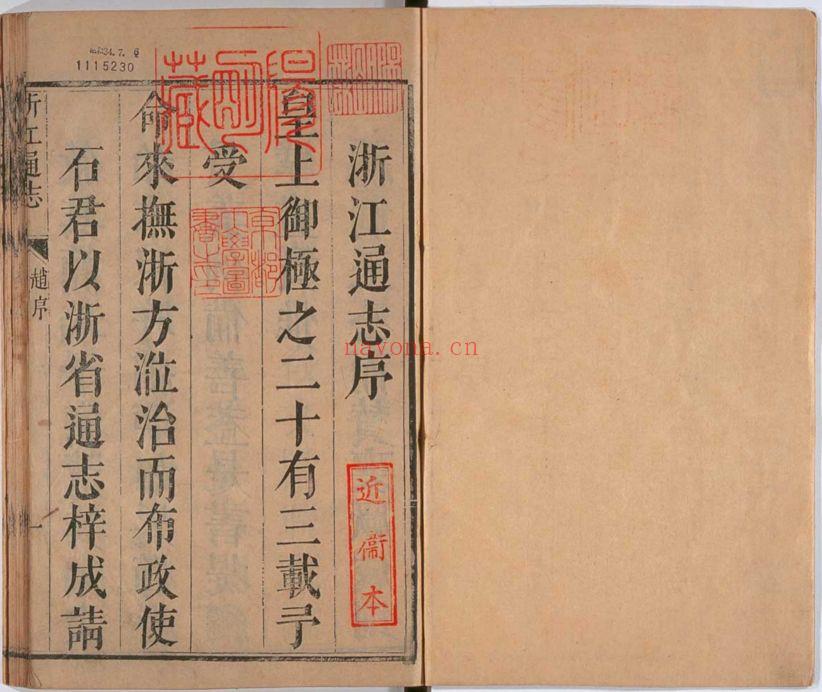 浙江通志序
皇上御極之二十有三載予
受
命來撫浙方涖治而布政使
石君以浙省通志梓成請
浙江通志
趙序
一
近衞本
京都
大學圖
書之印
1115230
navona.cn